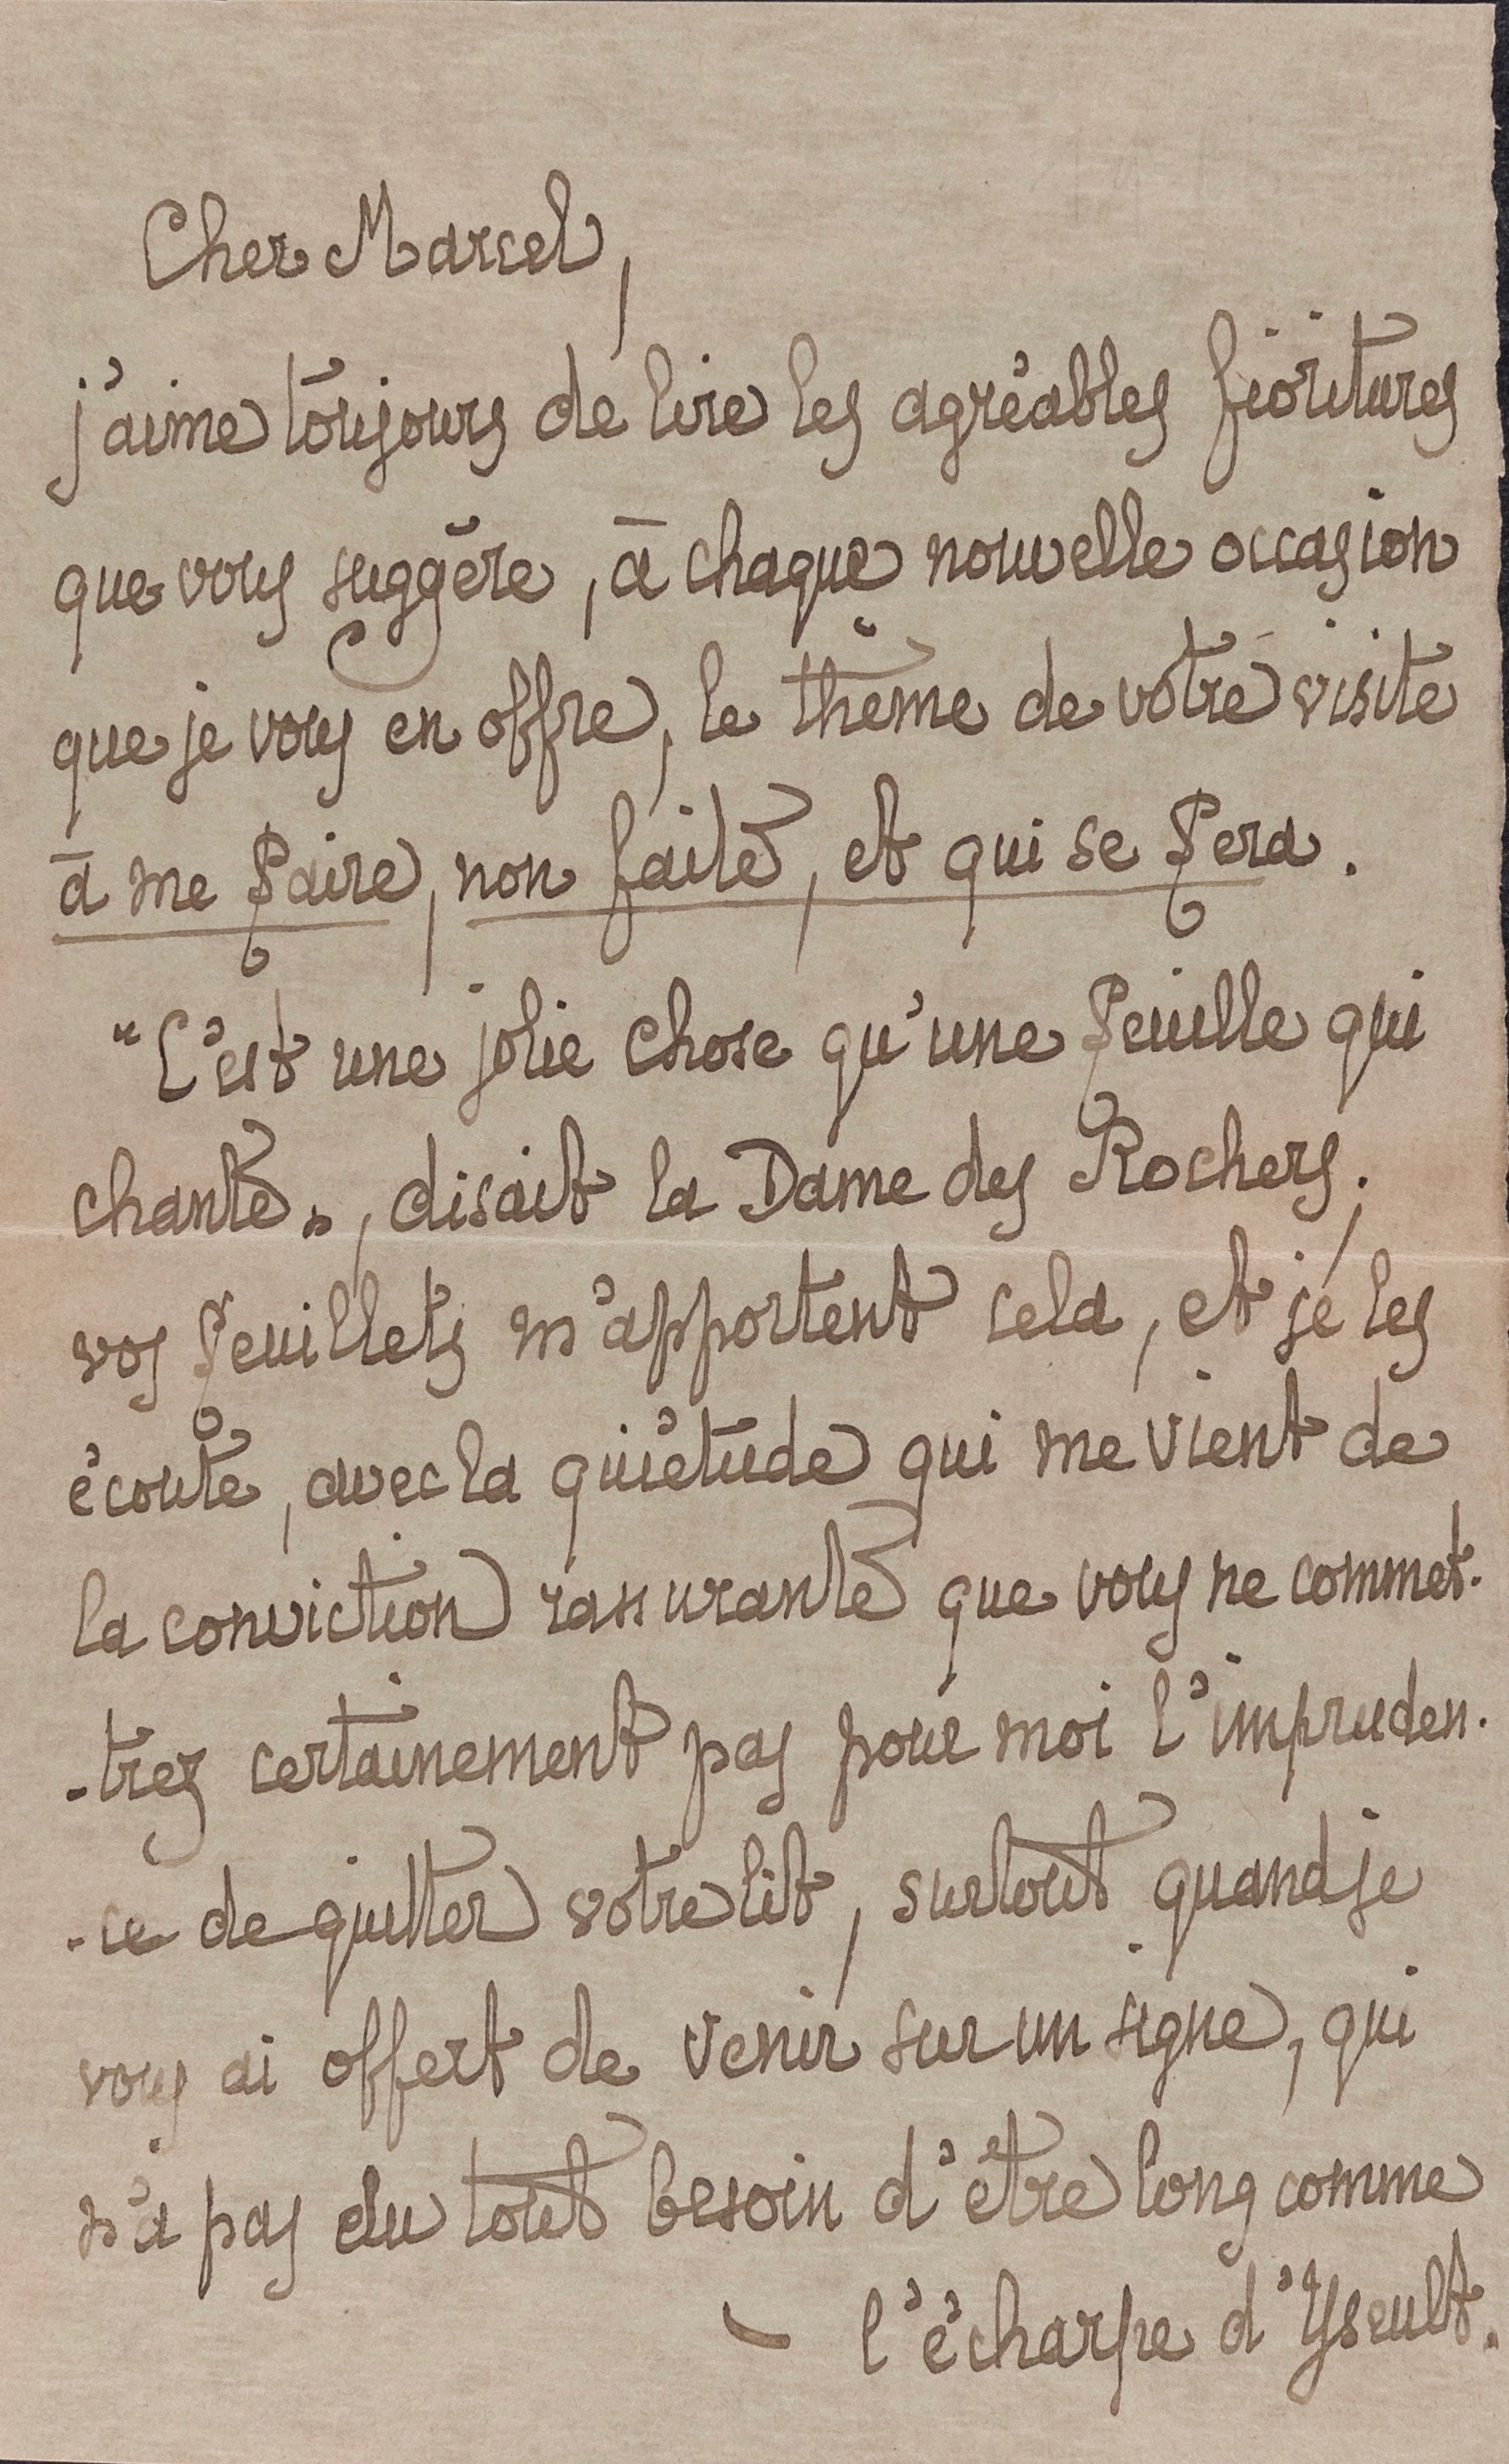 Cher Marcel,
j'aime toujours de lire les agréables fioritures
que vous suggère, à chaque nouvelle occasion
que je vous en offre, le thème de votre visite
à me faire, non faite, et qui se fera.
"C'est une jolie chose qu'une feuille qui
chante", disait la Dame des Rochers;
vos feuillets m'apportent cela, et je les
écoute, avec la quiétude qui me vient de
la conviction rassurante que vous ne commet-
-trez certainement pas pour moi l'impruden-
-ce de quitter votre lit, surtout quand je
vous ai offert de venir sur un signe, qui
n'a pas du tout besoin d'être long comme
– l'écharpe d'Yseult.